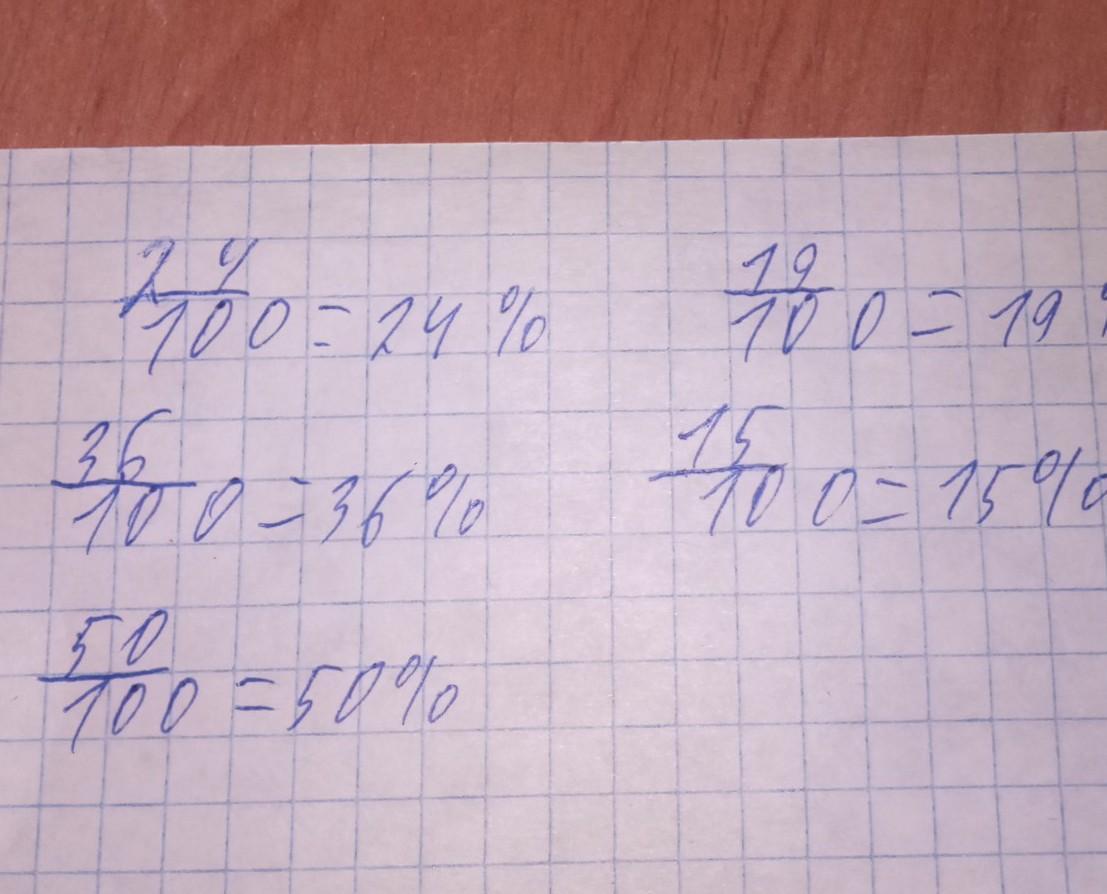 24/100 = 24 % 19/100 = 19 %
36/100 = 36% 15/100 = 15%
50/100 = 50%